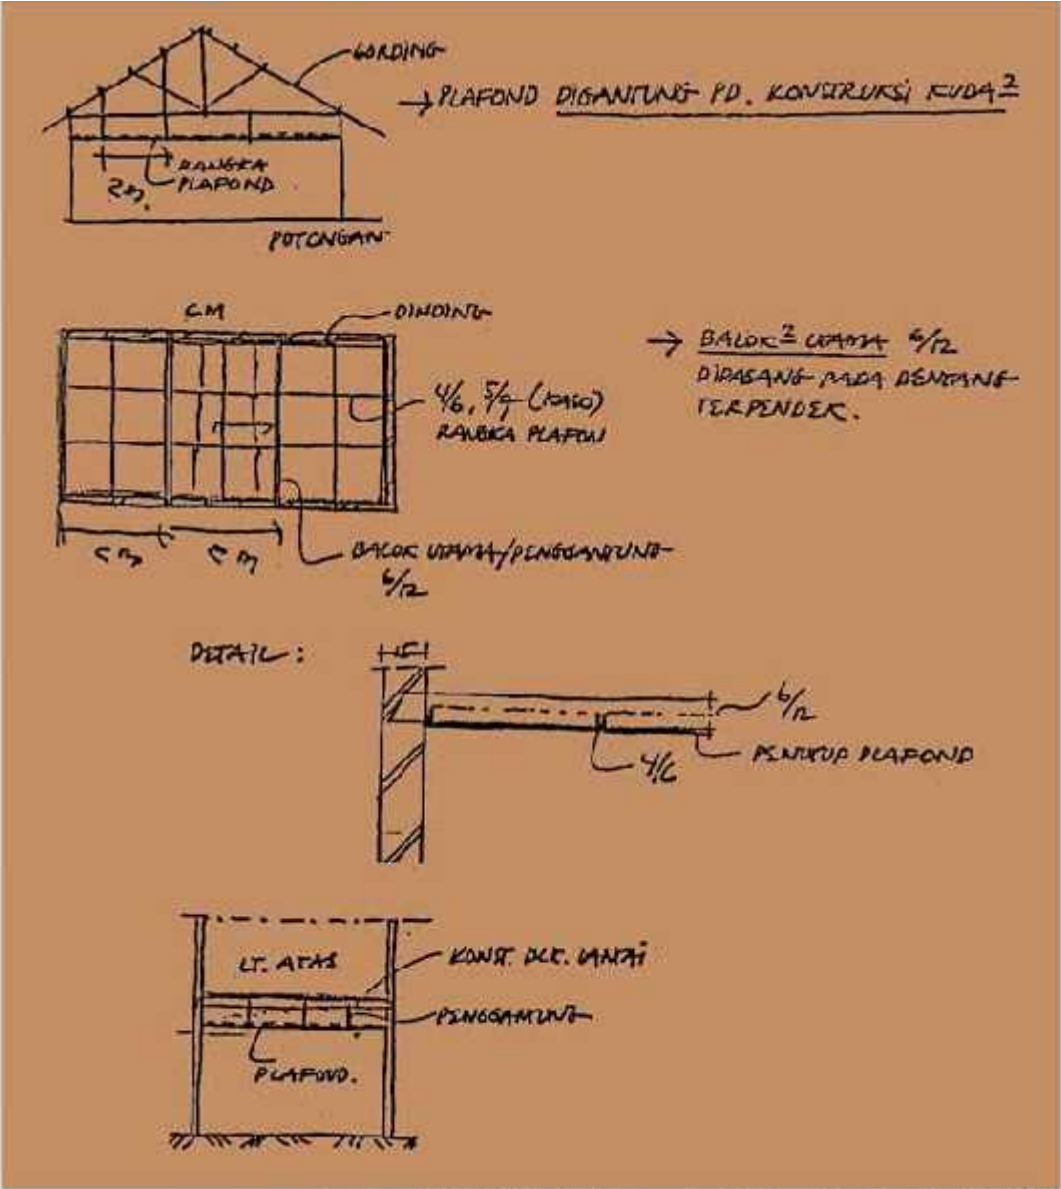 GORDING
→ PLAFOND DIGANTUNG PD. KONSTRUKSI KUDA²
RANGKA
PLAFOND
2 m.
POTONGAN
DINDING
→ BALOK² UTAMA 6/12
DIPASANG PADA BENTANG
TERPENDEK.
4/6, 5/7 (KASO)
RANGKA PLAFON
BALOK UTAMA/PENGGANTUNG
6/12
DETAIL :
15
6/12
PENUTUP PLAFOND
4/6
LT. ATAS
KONST. BLK. LANTAI
PENGGANTUNG
PLAFOND.